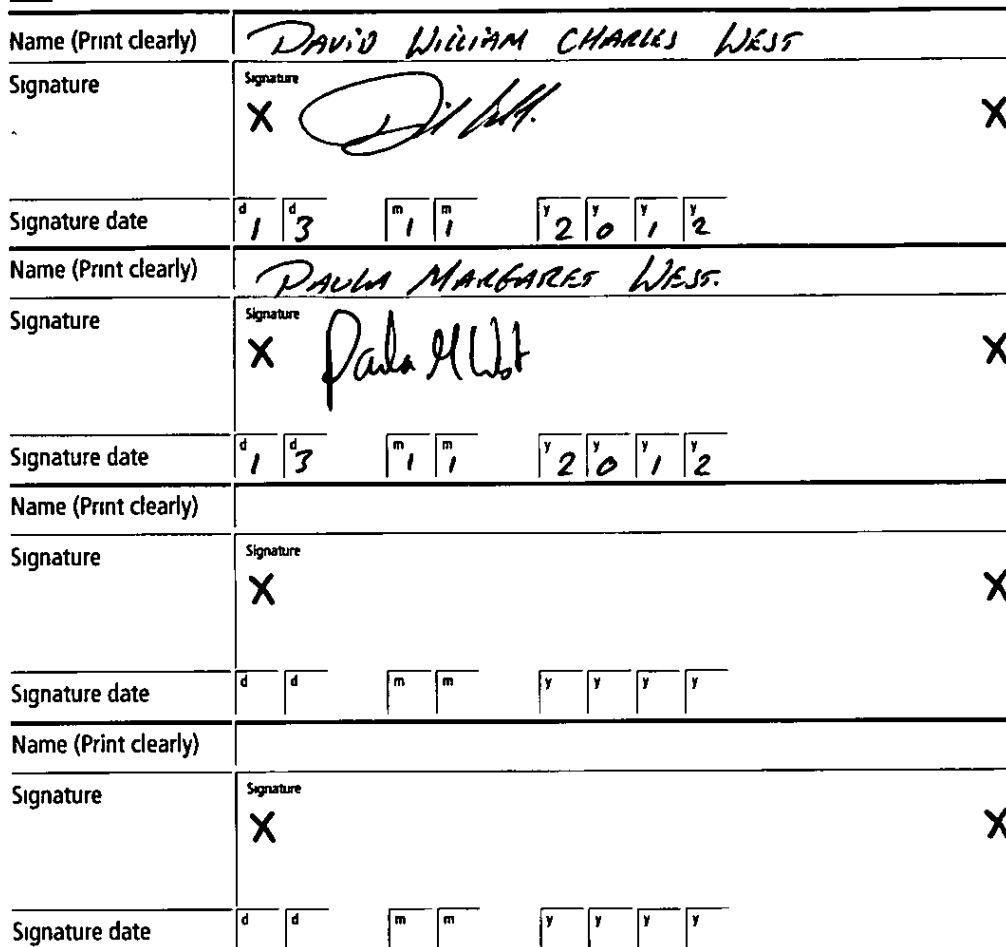 Name (Print clearly) DAVID WILLIAM CHARLES WEST
Signature Signature
X X
Signature date d1 d3 m1 m1 y2 y0 y1 y2
Name (Print clearly) PAULA MARGARET WEST.
Signature Signature
X Paula M West X
Signature date d1 d3 m1 m1 y2 y0 y1 y2
Name (Print clearly)
Signature Signature
X X
Signature date d d m m y y y y
Name (Print clearly)
Signature Signature
X X
Signature date d d m m y y y y